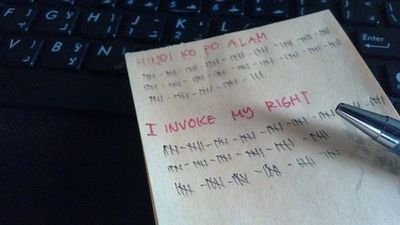 HINDI KO PO ALAM
I INVOKE MY RIGHT
Enter